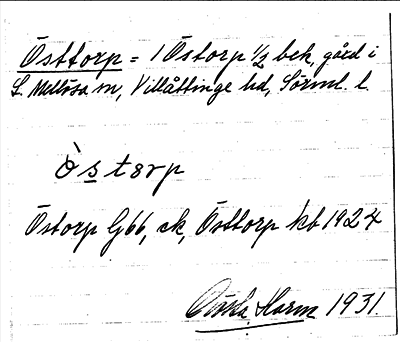 Östtorp = 1 Östorp 1/2 bek, gård i
L. Mellösa sn, Villåttinge hd, Sörml. l.
ò̀s̲tørp
Östorp G66, ek, Östtorp kb 1924
Gösta Harm 1931.